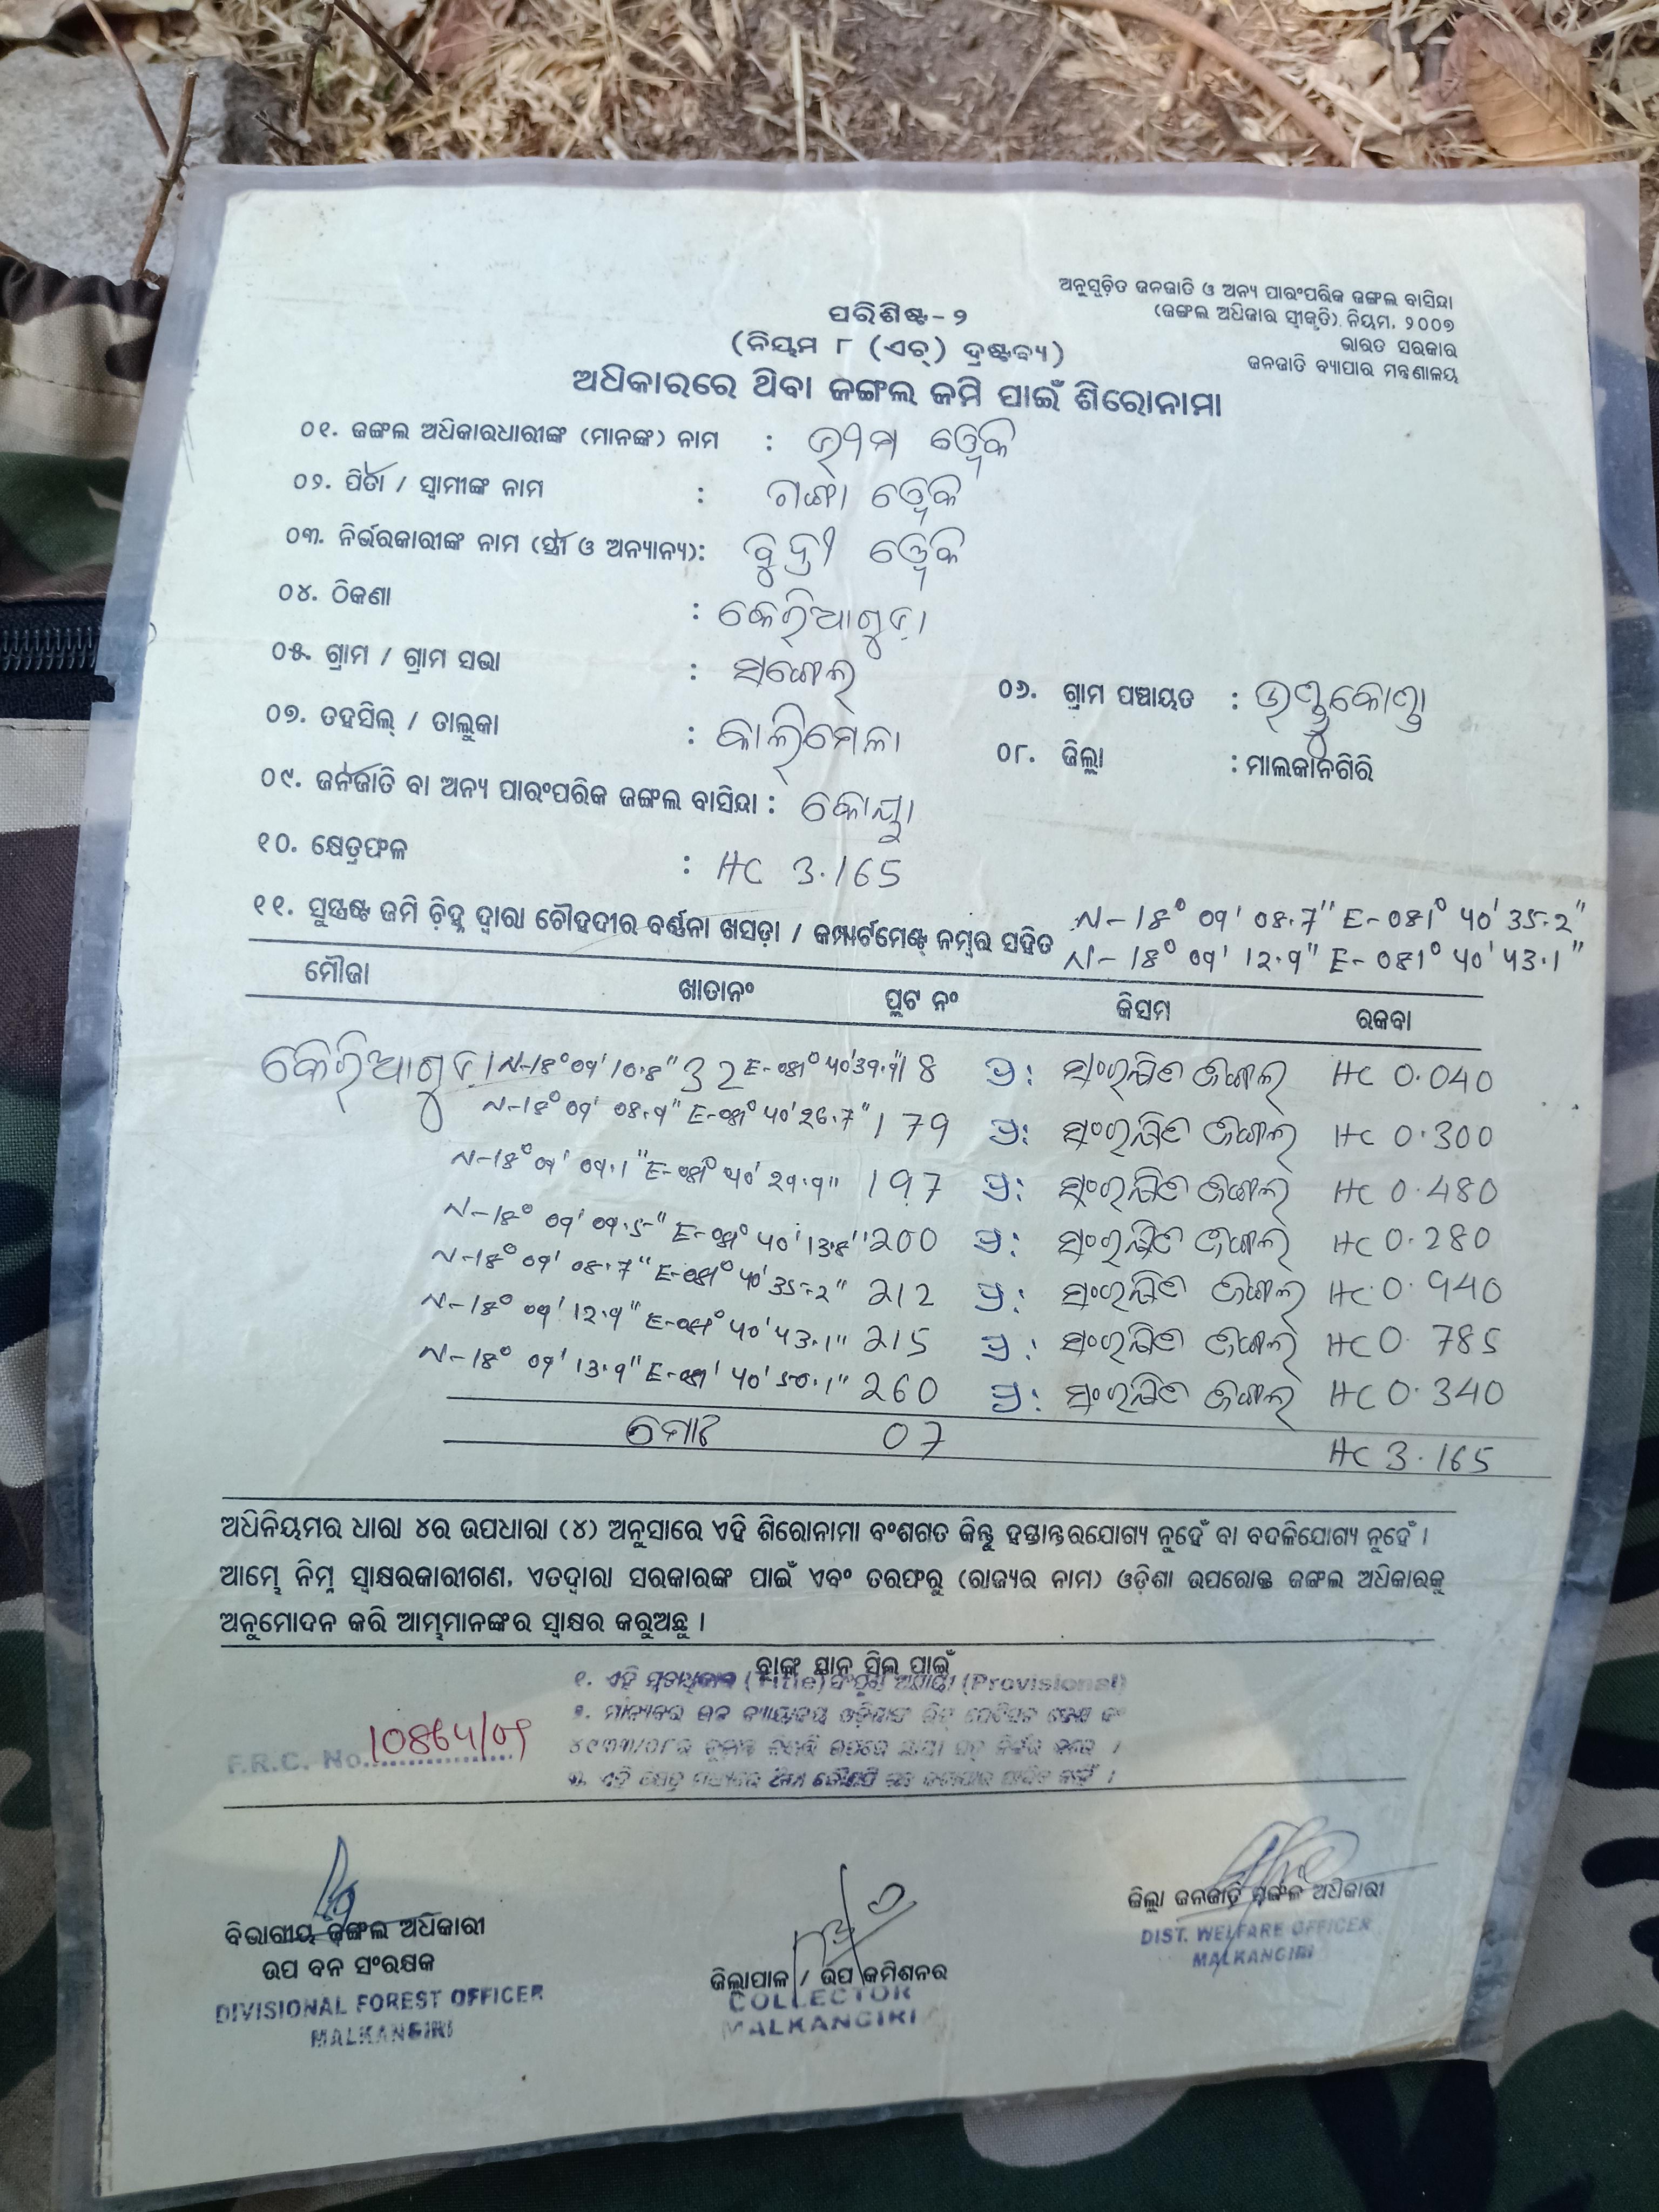 ଅନୁସୂଚିତ ଜନଜାତି ଓ ଅନ୍ୟ ପାରଂପରିକ ଜଙ୍ଗଲ ବାସିନ୍ଦା
(ଜଙ୍ଗଲ ଅଧିକାର ସ୍ୱୀକୃତି) ନିୟମ, ୨୦୦୭
ଭାରତ ସରକାର
ଜନଜାତି ବ୍ୟାପାର ମନ୍ତ୍ରଣାଳୟ
ପରିଶିଷ୍ଟ-୨
(ନିୟମ ୮ (ଏଚ୍) ଦ୍ରଷ୍ଟବ୍ୟ)
ଅଧିକାରରେ ଥିବା ଜଙ୍ଗଲ ଜମି ପାଇଁ ଶିରୋନାମା
୦୧. ଜଙ୍ଗଲ ଅଧିକାରଧାରୀଙ୍କ (ମାନଙ୍କ) ନାମ : ଭୀମା ଓ୍ବେକି
୦୨. ପିତା / ସ୍ୱାମୀଙ୍କ ନାମ : ଗଙ୍ଗା ଓ୍ବେକି
୦୩. ନିର୍ଭରକାରୀଙ୍କ ନାମ (ସ୍ତ୍ରୀ ଓ ଅନ୍ୟାନ୍ୟ): ବୁଦ୍ରୀ ଓ୍ବେକି
୦୪. ଠିକଣା : କେରିଆଗୁଡ଼ା
୦୫. ଗ୍ରାମ / ଗ୍ରାମ ସଭା : ସଙ୍ଗେଲ୍
୦୬. ଗ୍ରାମ ପଞ୍ଚାୟତ :
୦୭. ତହସିଲ୍ / ତାଲୁକା : କାଲିମେଳା
୦୮. ଜିଲ୍ଲା : ମାଲକାନଗିରି
୦୯. ଜନଜାତି ବା ଅନ୍ୟ ପାରଂପରିକ ଜଙ୍ଗଲ ବାସିନ୍ଦା : କୋୟା
୧୦. କ୍ଷେତ୍ରଫଳ : HC 3.165
୧୧. ସୁସ୍ପଷ୍ଟ ଜମି ଚ଼ିହ୍ନ ଦ୍ୱାରା ଚୌହଦୀର ବର୍ଣ୍ଣନା ଖସଡ଼ା / କମ୍ପାର୍ଟମେଣ୍ଟ୍ ନମ୍ବର ସହିତ
N-18° 09' 08.7" E-081° 40' 35.2"
N-18° 09' 12.9" E-081° 40' 43.1"
ମୌଜା ଖାତାନଂ ପ୍ଲଟ ନଂ କିସମ ରକବା
କେରିଆଗୁଡ଼ା N-18° 09' 10.8" 32 E-081° 40' 39.9" 18 ପ୍ର: ସଂରକ୍ଷିତ ଜଙ୍ଗଲ HC 0.040
N-18° 09' 08.9" E-081° 40' 26.7" 179 ପ୍ର: ସଂରକ୍ଷିତ ଜଙ୍ଗଲ HC 0.300
N-18° 09' 09.1" E-081° 40' 29.9" 197 ପ୍ର: ସଂରକ୍ଷିତ ଜଙ୍ଗଲ HC 0.480
N-18° 09' 09.5" E-081° 40' 13.8" 200 ପ୍ର: ସଂରକ୍ଷିତ ଜଙ୍ଗଲ HC 0.280
N-18° 09' 08.7" E-081° 40' 35.2" 212 ପ୍ର: ସଂରକ୍ଷିତ ଜଙ୍ଗଲ HC 0.940
N-18° 09' 12.9" E-081° 40' 43.1" 215 ପ୍ର: ସଂରକ୍ଷିତ ଜଙ୍ଗଲ HC 0.785
N-18° 09' 13.9" E-081° 40' 50.1" 260 ପ୍ର: ସଂରକ୍ଷିତ ଜଙ୍ଗଲ HC 0.340
ମୋଟ 07 HC 3.165
ଅଧିନିୟମର ଧାରା ୪ର ଉପଧାରା (୪) ଅନୁସାରେ ଏହି ଶିରୋନାମା ବଂଶଗତ କିନ୍ତୁ ହସ୍ତାନ୍ତରଯୋଗ୍ୟ ନୁହେଁ ବା ବଦଳିଯୋଗ୍ୟ ନୁହେଁ ।
ଆମ୍ଭେ ନିମ୍ନ ସ୍ୱାକ୍ଷରକାରୀଗଣ, ଏତଦ୍ଦ୍ୱାରା ସରକାରଙ୍କ ପାଇଁ ଏବଂ ତରଫରୁ (ରାଜ୍ୟର ନାମ) ଓଡ଼ିଶା ଉପରୋକ୍ତ ଜଙ୍ଗଲ ଅଧିକାରକୁ
ଅନୁମୋଦନ କରି ଆମ୍ଭମାନଙ୍କର ସ୍ୱାକ୍ଷର କରୁଅଛୁ ।
ପାଇଁ
୧. ଏହି (Title) (Provisional)
F.R.C. No. 10864/09
ବିଭାଗୀୟ ଜଙ୍ଗଲ ଅଧିକାରୀ
ଉପ ବନ ସଂରକ୍ଷକ
DIVISIONAL FOREST OFFICER
MALKANGIRI
ଜିଲ୍ଲାପାଳ / ଉପ କମିଶନର
COLLECTOR
MALKANGIRI
ଜିଲ୍ଲା ଜନଜାତି ମଙ୍ଗଳ ଅଧିକାରୀ
DIST. WELFARE OFFICER
MALKANGIRI